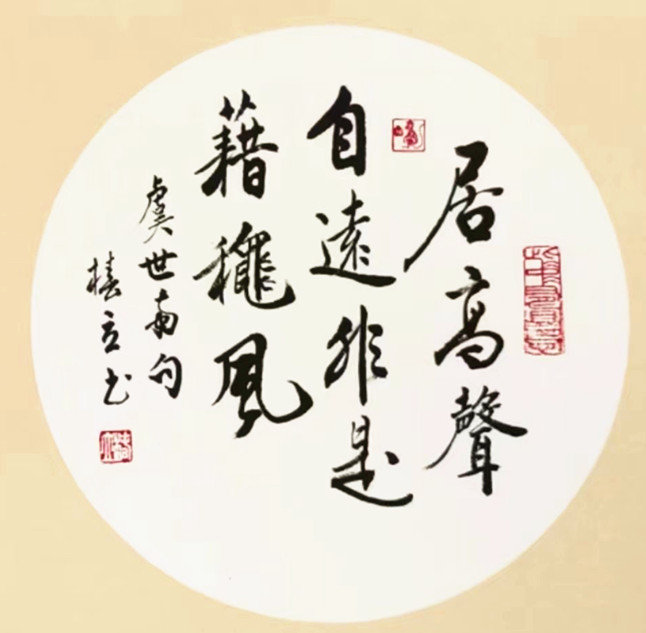 居高聲
自遠非是
藉穐風
虞世南句
椿立书